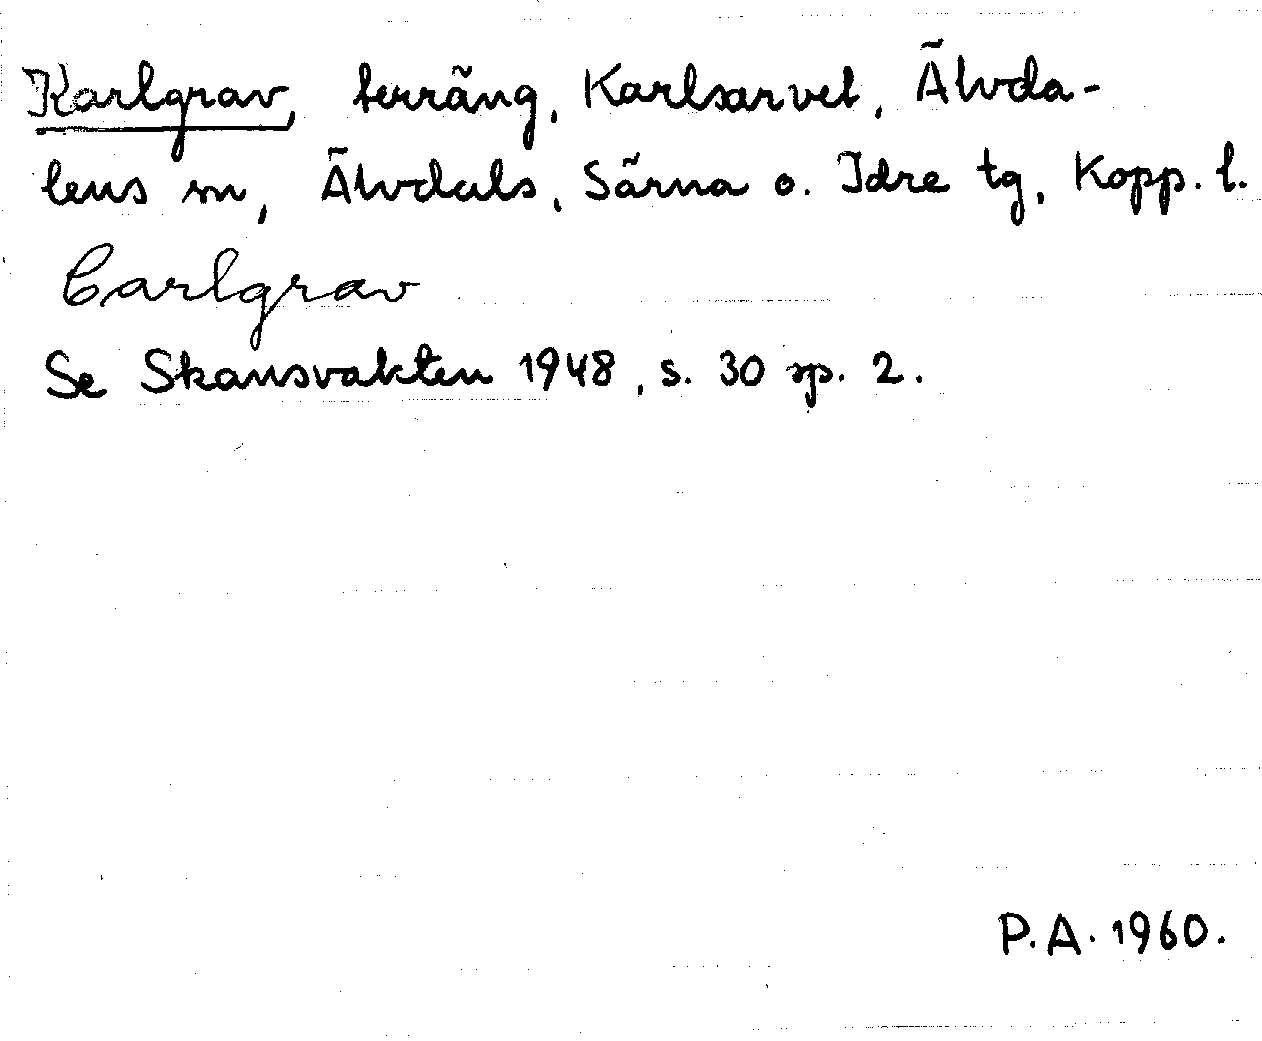 Karlgrav, terräng, Karlsarvet, Älvda-
lens sn, Älvdals, Särna o. Idre tg, Kopp. l.
Carlgrav
Se Skansvakten 1948, s. 30 sp. 2.
P.A. 1960.